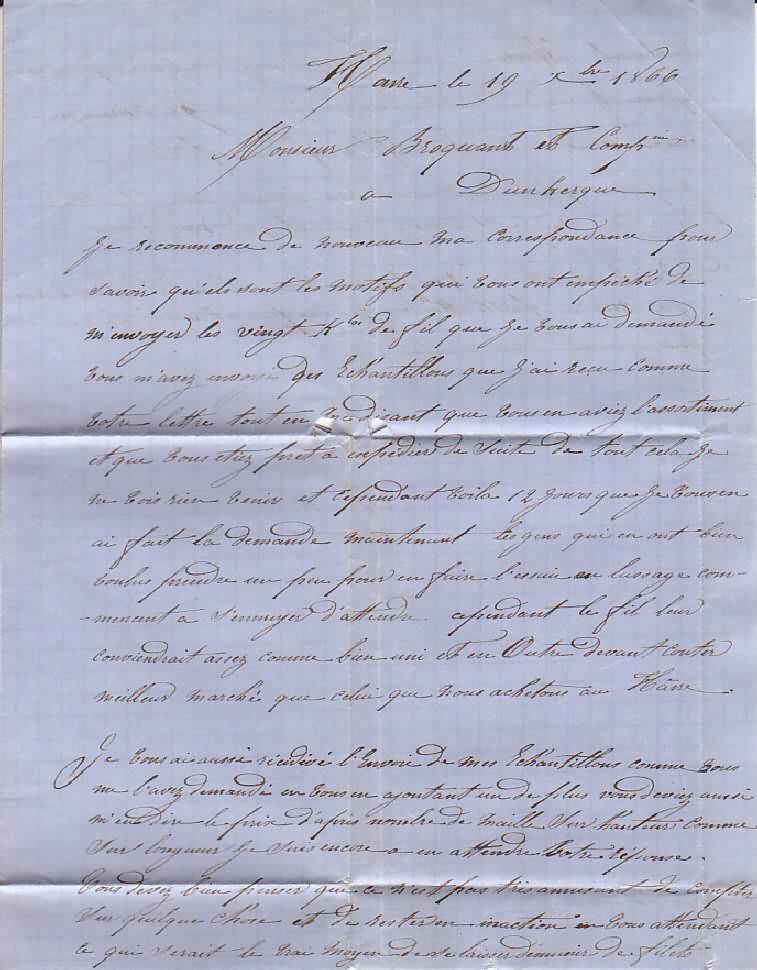 Havre le 19 xbre 1866
Monsieur Broquant et Compnie
a Dunkerque
Je recommence de nouveau ma correspondance pour
savoir qu'els sont les motifs qui vous ont empéché de
m'envoyer les vingt Klos de fil que Je vous ai demandé
vous m'avez envoyé des Echantillons que J'ai reçu comme
votre lettre tout en me disant que vous en aviez l'assortiment
et que vous etiez pret a expedier de suite de tout cela Je
ne vois rien venir et cependant voila 12 Jours que Je vous en
ai fait la demande maintenant les gens qui en ont bien
voulus prendre un peu pour en faire l'essaie en lassage com-
-mencent a s'ennuyer d'attendre cependant le fil leur
conviendrait assez comme bien uni et en Outre devant couter
meilleur marché que celui que nous achetons au Hâvre.
Je vous ai aussi récidivé l'Envoi de mes Echantillons comme vous
me l'avez demandé en vous en ajoutant un de plus vous deviez aussi
m'en dire le prix d'après nombre de maille sur hauteur comme
sur longueur Je suis encore a en attendre votre réponse.
Vous devez bien penser que ce n'est pas très amusant de compter
sur quelque chose et de rester en inaction en vous attendant
ce qui serait le vrai moyen de se laisser démunir de filets